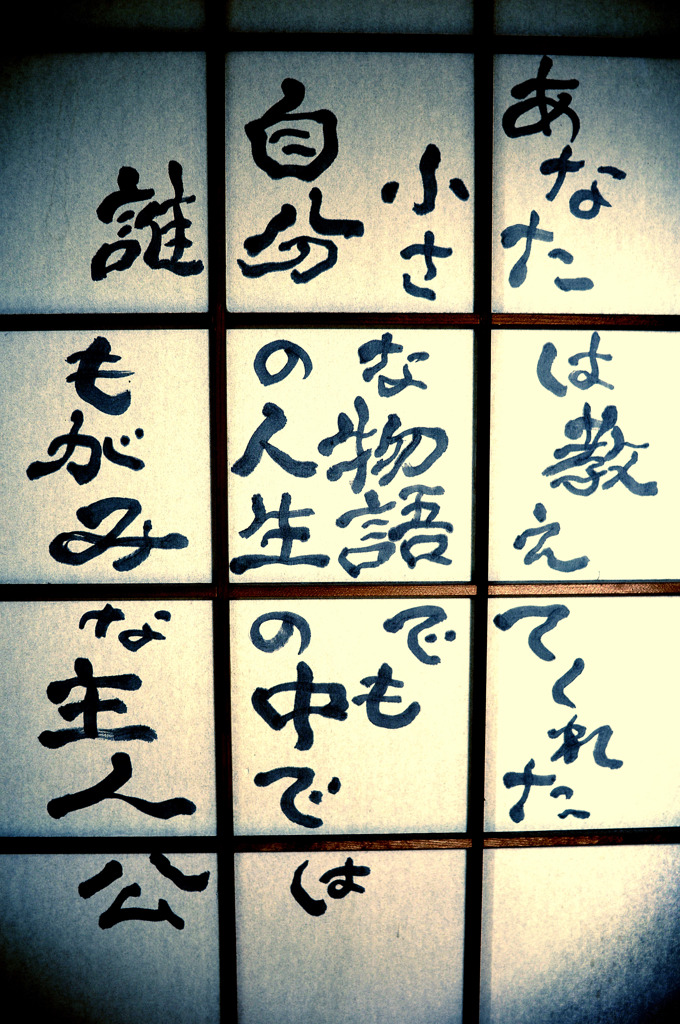 あなたは教えてくれた
小さな物語でも
自分の人生の中では
誰もがみな主人公